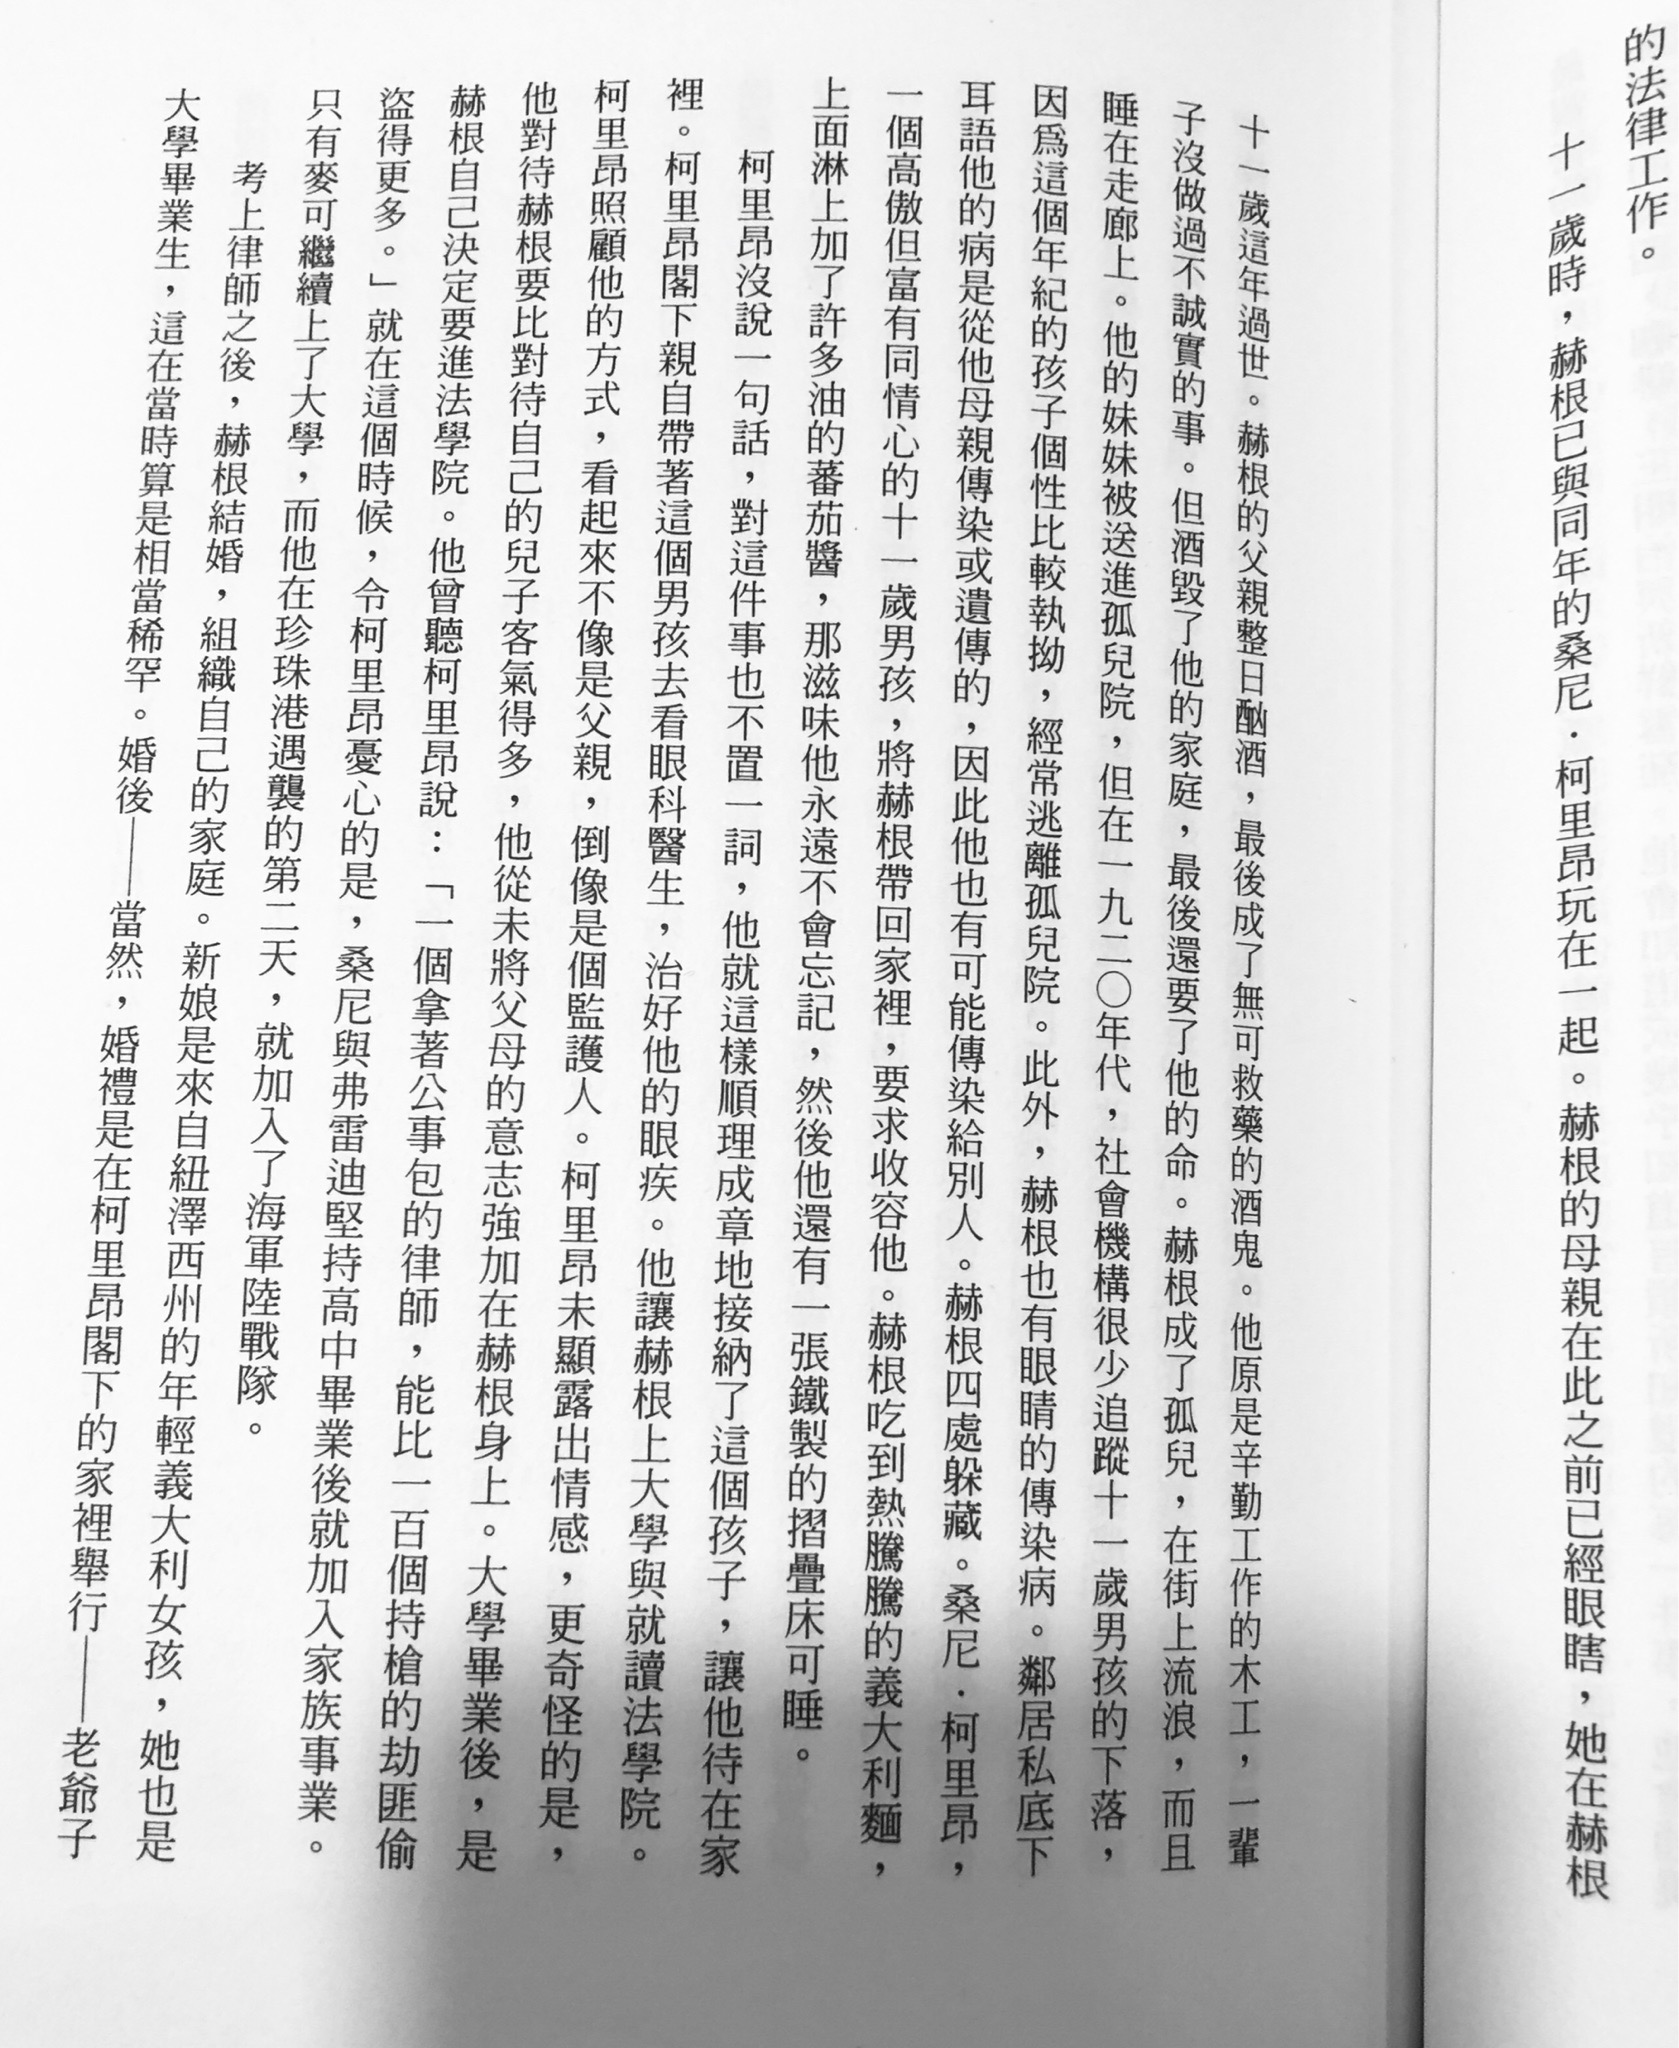 的法律工作。
十一歲時，赫根已與同年的桑尼．柯里昂玩在一起。赫根的母親在此之前已經眼瞎，她在赫根
十一歲這年過世。赫根的父親整日酗酒，最後成了無可救藥的酒鬼。他原是辛勤工作的木工，一輩
子沒做過不誠實的事。但酒毀了他的家庭，最後還要了他的命。赫根成了孤兒，在街上流浪，而且
睡在走廊上。他的妹妹被送進孤兒院，但在一九二〇年代，社會機構很少追蹤十一歲男孩的下落，
因為這個年紀的孩子個性比較執拗，經常逃離孤兒院。此外，赫根也有眼睛的傳染病。鄰居私底下
耳語他的病是從他母親傳染或遺傳的，因此他也有可能傳染給別人。赫根四處躲藏。桑尼．柯里昂，
一個高傲但富有同情心的十一歲男孩，將赫根帶回家裡，要求收容他。赫根吃到熱騰騰的義大利麵，
上面淋上加了許多油的蕃茄醬，那滋味他永遠不會忘記，然後他還有一張鐵製的摺疊床可睡。
柯里昂沒說一句話，對這件事也不置一詞，他就這樣順理成章地接納了這個孩子，讓他待在家
裡。柯里昂閣下親自帶著這個男孩去看眼科醫生，治好他的眼疾。他讓赫根上大學與就讀法學院。
柯里昂照顧他的方式，看起來不像是父親，倒像是個監護人。柯里昂未顯露出情感，更奇怪的是，
他對待赫根要比對待自己的兒子客氣得多，他從未將父母的意志強加在赫根身上。大學畢業後，是
赫根自己決定要進法學院。他曾聽柯里昂說：「一個拿著公事包的律師，能比一百個持槍的劫匪偷
盜得更多。」就在這個時候，令柯里昂憂心的是，桑尼與弗雷迪堅持高中畢業後就加入家族事業。
只有麥可繼續上了大學，而他在珍珠港遇襲的第二天，就加入了海軍陸戰隊。
考上律師之後，赫根結婚，組織自己的家庭。新娘是來自紐澤西州的年輕義大利女孩，她也是
大學畢業生，這在當時算是相當稀罕。婚後——當然，婚禮是在柯里昂閣下的家裡舉行——老爺子